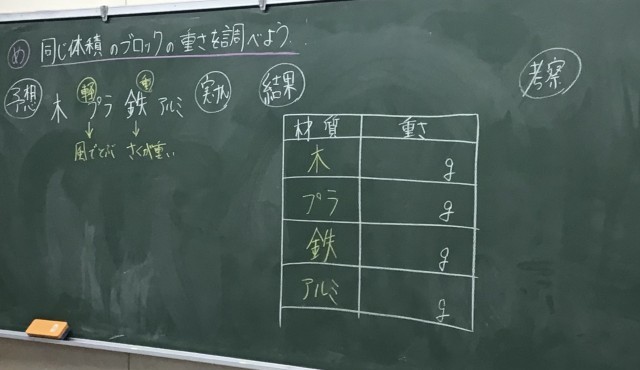 め 同じ体積のブロックの重さを調べよう.
予想 木 プラ 鉄 アルミ
軽 重
風でとぶ さくが重い
実験
結果
考察
材質 重さ
木 g
プラ g
鉄 g
アルミ g